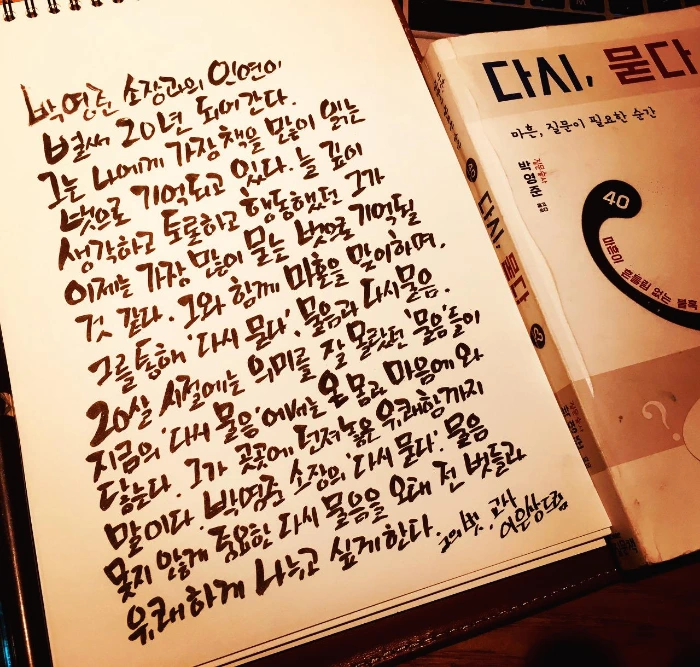 박영준 소장과의 인연이
벌써 20년 되어간다.
그는 나에게 가장 책을 많이 읽는
벗으로 기억되고 있다. 늘 깊이
생각하고 토론하고 행동했던 그가
이제는 가장 많이 묻는 벗으로 기억될
것 같다. 그와 함께 마흔을 맞이하며,
그를 통해 '다시 묻다', 물음과 다시 물음.
20살 시절에는 의미를 잘 몰랐던 '물음'들이
지금의 '다시 물음'에서는 온 몸과 마음에 와
닿는다. 그가 곳곳에 던져놓은 유쾌함까지
말이다. 박영준 소장의 '다시 묻다'. 물음
못지 않게 중요한 다시 물음을 오래 전 벗들과
유쾌하게 나누고 싶게한다. 그의 벗, 교사
이은상 드림
다시, 묻다
마흔, 질문이 필요한 순간
박영준
40
마흔이 흔들림 없는 불혹
다시, 묻다
박영준